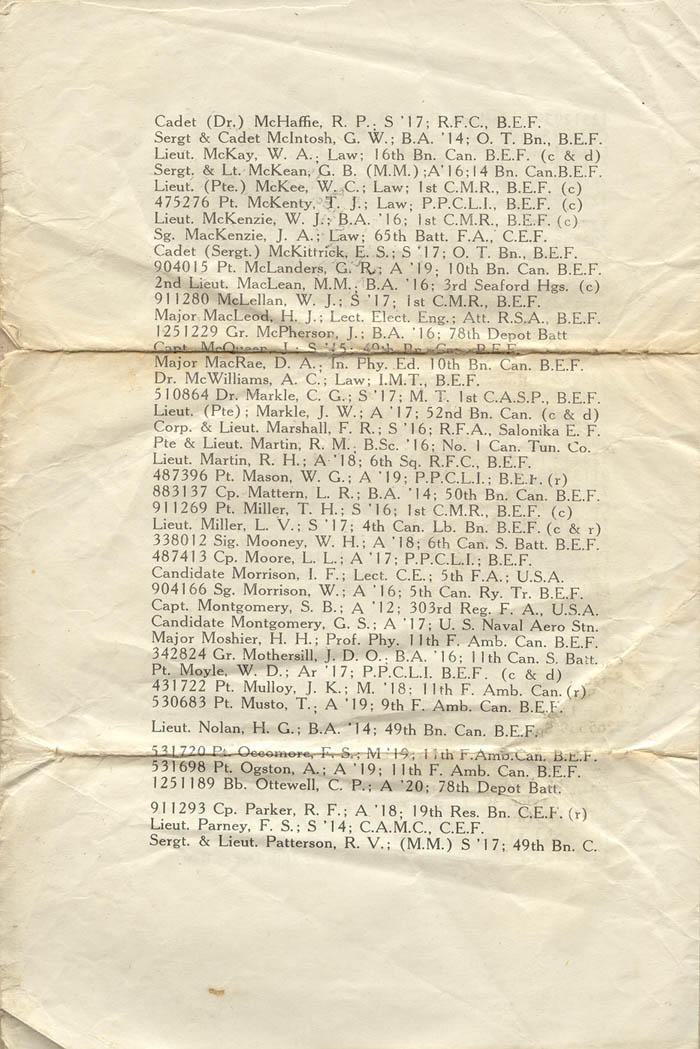 Cadet (Dr.) McHaffie, R. P.; S '17; R.F.C., B.E.F.
Sergt & Cadet McIntosh, G. W.; B.A. '14; O. T. Bn., B.E.F.
Lieut. McKay, W. A.; Law; 16th Bn. Can. B.E.F. (c & d)
Sergt. & Lt. McKean, G. B. (M.M.) ;A'16;14 Bn. Can.B.E.F.
Lieut. (Pte.) McKee, W. C.; Law; 1st C.M.R., B.E.F. (c)
475276 Pt. McKenty, T. J.; Law; P.P.C.L.I., B.E.F. (c)
Lieut. McKenzie, W. J.; B.A. '16; 1st C.M.R., B.E.F. (c)
Sg. MacKenzie, J. A.; Law; 65th Batt. F.A., C.E.F.
Cadet (Sergt.) McKittrick, E. S.; S '17; O. T. Bn., B.E.F.
904015 Pt. McLanders, G. R.; A '19; 10th Bn. Can. B.E.F.
2nd Lieut. MacLean, M.M.; B.A. '16; 3rd Seaford Hgs. (c)
911280 McLellan, W. J.; S '17; 1st C.M.R., B.E.F.
Major MacLeod, H. J.; Lect. Elect. Eng.; Att. R.S.A., B.E.F.
1251229 Gr. McPherson, J.; B.A. '16; 78th Depot Batt
Capt. McQueen, J.; S '15; 49th Bn. Can. B.E.F.
Major MacRae, D. A.; In. Phy. Ed. 10th Bn. Can. B.E.F.
Dr. McWilliams, A. C.; Law; I.M.T., B.E.F.
510864 Dr. Markle, C. G.; S '17; M. T. 1st C.A.S.P., B.E.F.
Lieut. (Pte) ; Markle, J. W.; A '17; 52nd Bn. Can. (c & d)
Corp. & Lieut. Marshall, F. R.; S '16; R.F.A., Salonika E. F.
Pte & Lieut. Martin, R. M.; B.Sc. '16; No. 1 Can. Tun. Co.
Lieut. Martin, R. H.; A '18; 6th Sq. R.F.C., B.E.F.
487396 Pt. Mason, W. G.; A '19; P.P.C.L.I.; B.E.F. (r)
883137 Cp. Mattern, L. R.; B.A. '14; 50th Bn. Can. B.E.F.
911269 Pt. Miller, T. H.; S '16; 1st C.M.R., B.E.F. (c)
Lieut. Miller, L. V.; S '17; 4th Can. Lb. Bn. B.E.F. (c & r)
338012 Sig. Mooney, W. H.; A '18; 6th Can. S. Batt. B.E.F.
487413 Cp. Moore, L. L.; A '17; P.P.C.L.I.; B.E.F.
Candidate Morrison, I. F.; Lect. C.E.; 5th F.A.; U.S.A.
904166 Sg. Morrison, W.; A '16; 5th Can. Ry. Tr. B.E.F.
Capt. Montgomery, S. B.; A '12; 303rd Reg. F. A., U.S.A.
Candidate Montgomery, G. S.; A '17; U. S. Naval Aero Stn.
Major Moshier, H. H.; Prof. Phy. 11th F. Amb. Can. B.E.F.
342824 Gr. Mothersill, J. D. O.; B.A. '16; 11th Can. S. Batt.
Pt. Moyle, W. D.; Ar '17; P.P.C.L.I. B.E.F. (c & d)
431722 Pt. Mulloy, J. K.; M. '18; 11th F. Amb. Can. (r)
530683 Pt. Musto, T.; A '19; 9th F. Amb. Can. B.E.F.
Lieut. Nolan, H. G.; B.A. '14; 49th Bn. Can. B.E.F.
531720 Pt. Oecomore, F. S.; M '19; 11th F.Amb.Can. B.E.F.
531698 Pt. Ogston, A.; A '19; 11th F. Amb. Can. B.E.F.
1251189 Bb. Ottewell, C. P.; A '20; 78th Depot Batt.
911293 Cp. Parker, R. F.; A '18; 19th Res. Bn. C.E.F. (r)
Lieut. Parney, F. S.; S '14; C.A.M.C., C.E.F.
Sergt. & Lieut. Patterson, R. V.; (M.M.) S '17; 49th Bn. C.